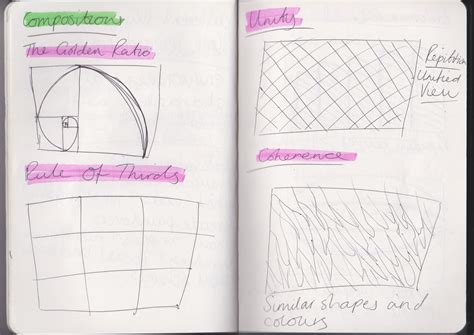 Composition
The Golden Ratio
Rule Of Thirds
Unity
Repitition
Unified
View
Coherence
Similar shapes and
colours